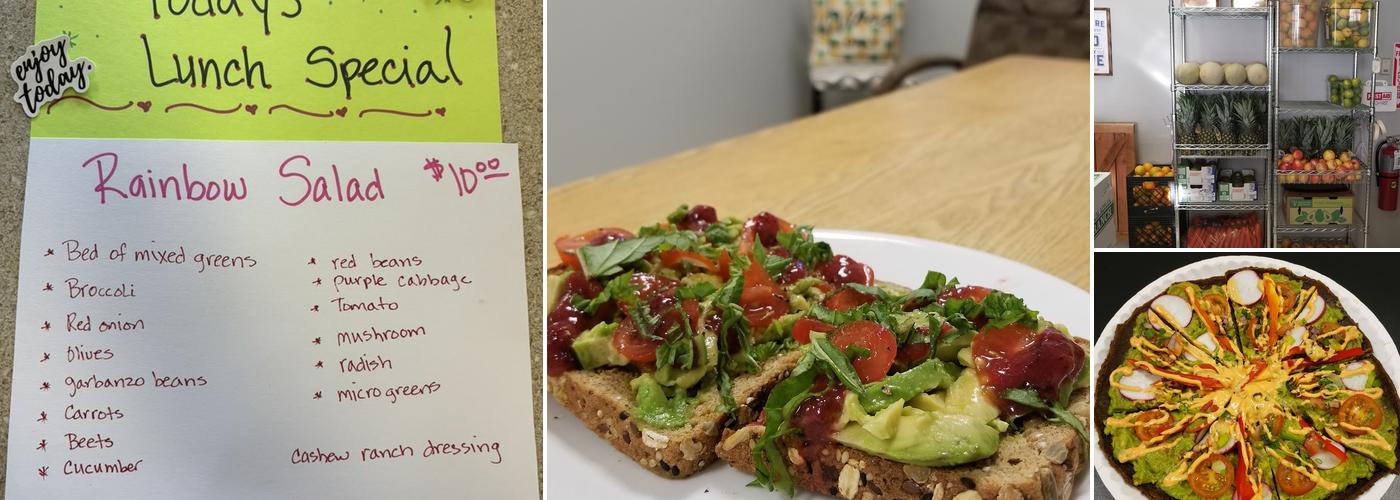 Today's
Lunch Special
enjoy
today.
Rainbow Salad $10.00
* Bed of mixed greens
* Broccoli
* Red onion
* Olives
* garbanzo beans
* Carrots
* Beets
* Cucumber
* red beans
* purple cabbage
* Tomato
* mushroom
* radish
* micro greens
cashew ranch dressing
FIRST AID